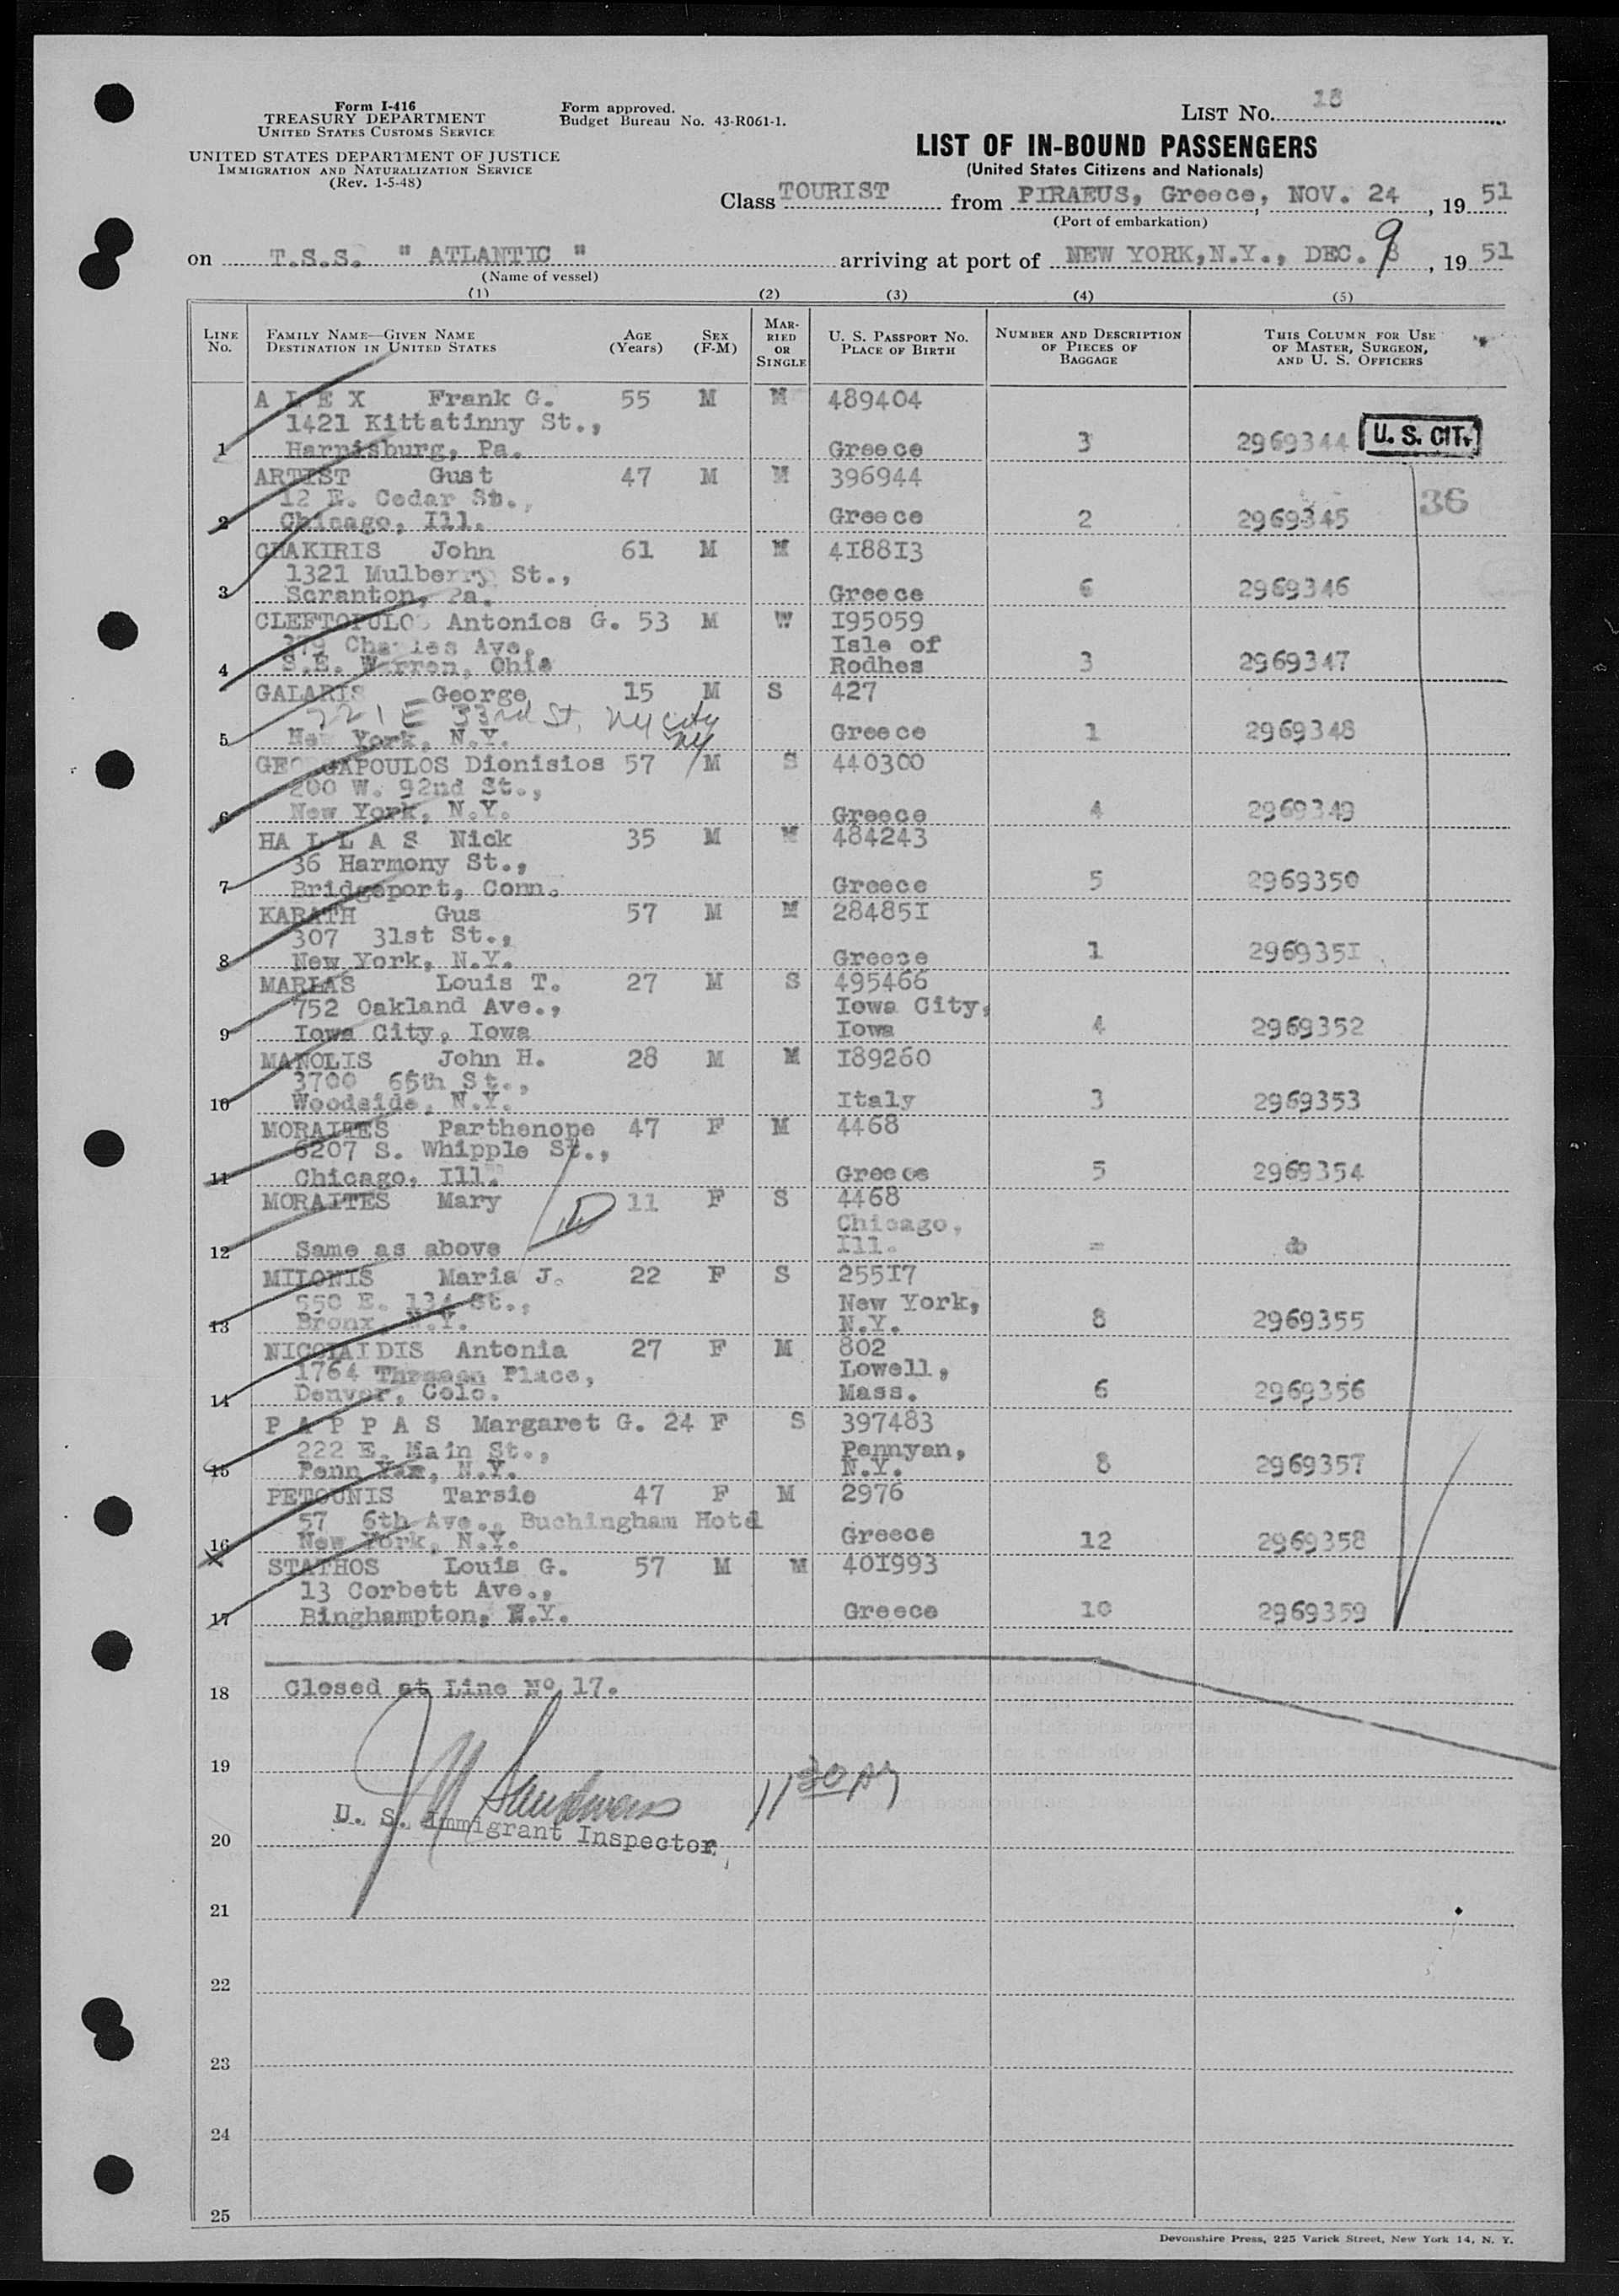 Form I-416
TREASURY DEPARTMENT
UNITED STATES CUSTOMS SERVICE
UNITED STATES DEPARTMENT OF JUSTICE
IMMIGRATION AND NATURALIZATION SERVICE
(Rev. 1-5-48)
Form approved.
Budget Bureau No. 43-R061-1.
LIST No. 18
LIST OF IN-BOUND PASSENGERS
(United States Citizens and Nationals)
Class TOURIST from PIRAEUS, Greece, NOV. 24, 19 51
(Port of embarkation)
on T.S.S. " ATLANTIC " arriving at port of NEW YORK, N.Y., DEC. 9, 19 51
(Name of vessel)
(1) (2) (3) (4) (5)
LINE No. FAMILY NAME—GIVEN NAME DESTINATION IN UNITED STATES AGE (Years) SEX (F-M) MARRIED OR SINGLE U. S. PASSPORT NO. PLACE OF BIRTH NUMBER AND DESCRIPTION OF PIECES OF BAGGAGE THIS COLUMN FOR USE OF MASTER, SURGEON, AND U. S. OFFICERS
A L E X Frank G. 55 M M 489404
1421 Kittatinny St.,
1 Harrisburg, Pa. Greece 3 2969344 U. S. CIT.
ARTIST Gust 47 M M 396944
12 E. Cedar St., 36
2 Chicago, Ill. Greece 2 2969345
CHAKIRIS John 61 M M 418813
1321 Mulberry St.,
3 Scranton, Pa. Greece 6 2969346
CLEFTOPULOS Antonios G. 53 M W I95059
379 Charles Ave. Isle of
4 S.E. Warren, Ohio Rodhes 3 2969347
GALARIS George 15 M S 427
221 E 33rd St. NY City
NY
5 New York, N.Y. Greece 1 2969348
GEORGAPOULOS Dionisios 57 M S 440300
200 W. 92nd St.,
6 New York, N.Y. Greece 4 2969349
HA L L A S Nick 35 M M 484243
36 Harmony St.,
7 Bridgeport, Conn. Greece 5 2969350
KARATH Gus 57 M M 28485I
307 31st St.,
8 New York, N.Y. Greece 1 296935I
MARLAS Louis T. 27 M S 495466
752 Oakland Ave., Iowa City,
9 Iowa City, Iowa Iowa 4 2969352
MANOLIS John H. 28 M M I89260
3700 65th St.,
10 Woodside, N.Y. Italy 3 2969353
MORAITES Parthenope 47 F M 4468
6207 S. Whipple St.,
11 Chicago, Ill. Greece 5 2969354
MORAITES Mary 11 F S 4468
Chicago,
12 Same as above Ill. = do
MILONIS Maria J. 22 F S 255I7
550 E. 134 St., New York,
13 Bronx, N.Y. N.Y. 8 2969355
NICOLAIDIS Antonia 27 F M 802
1764 Place, Lowell,
14 Denver, Colo. Mass. 6 2969356
P A P P A S Margaret G. 24 F S 397483
222 E. Main St., Pennyan,
15 Penn Yan, N.Y. N.Y. 8 2969357
PETOUNIS Tarsie 47 F M 2976
57 6th Ave., Buchingham Hotel
16 New York, N.Y. Greece 12 2969358
STATHOS Louis G. 57 M M 40I993
13 Corbett Ave.,
17 Binghampton, N.Y. Greece 10 2969359
18 Closed at Line No 17.
19
11 30 AM
U. S. Immigrant Inspector
20
21
22
23
24
25
Devonshire Press, 225 Varick Street, New York 14, N. Y.